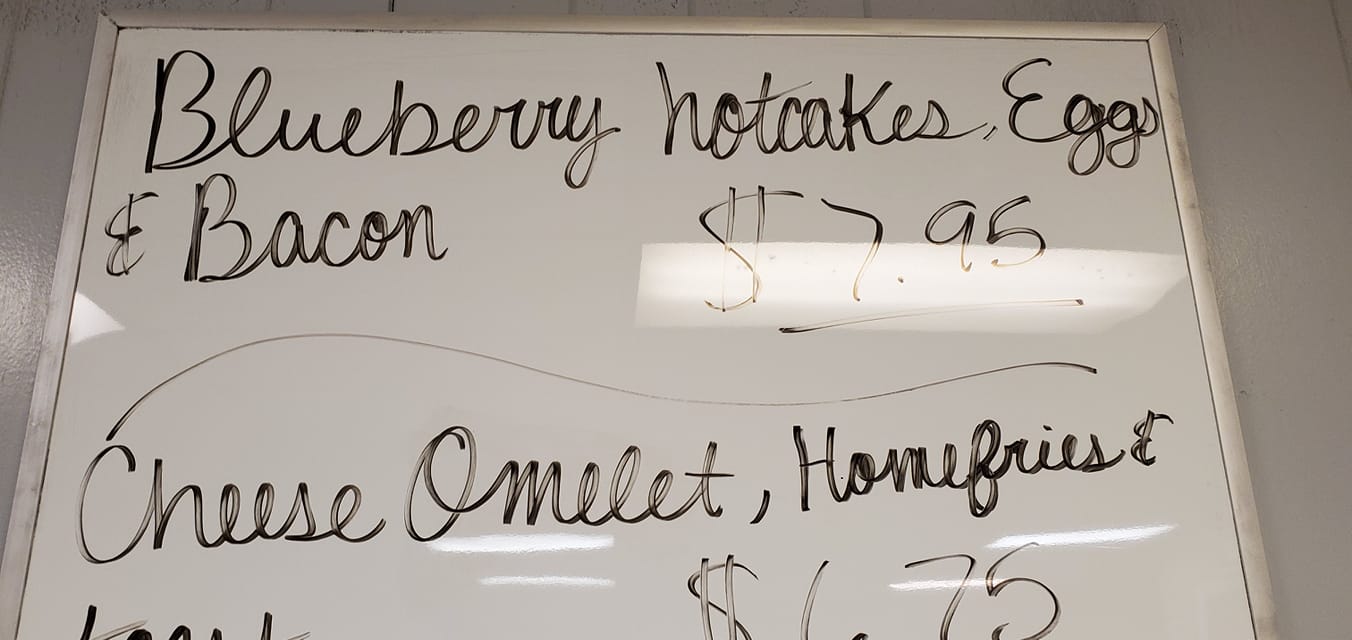 Blueberry hotcakes, Eggs
& Bacon $7.95
Cheese Omelet, Homefries &
toast $6.75